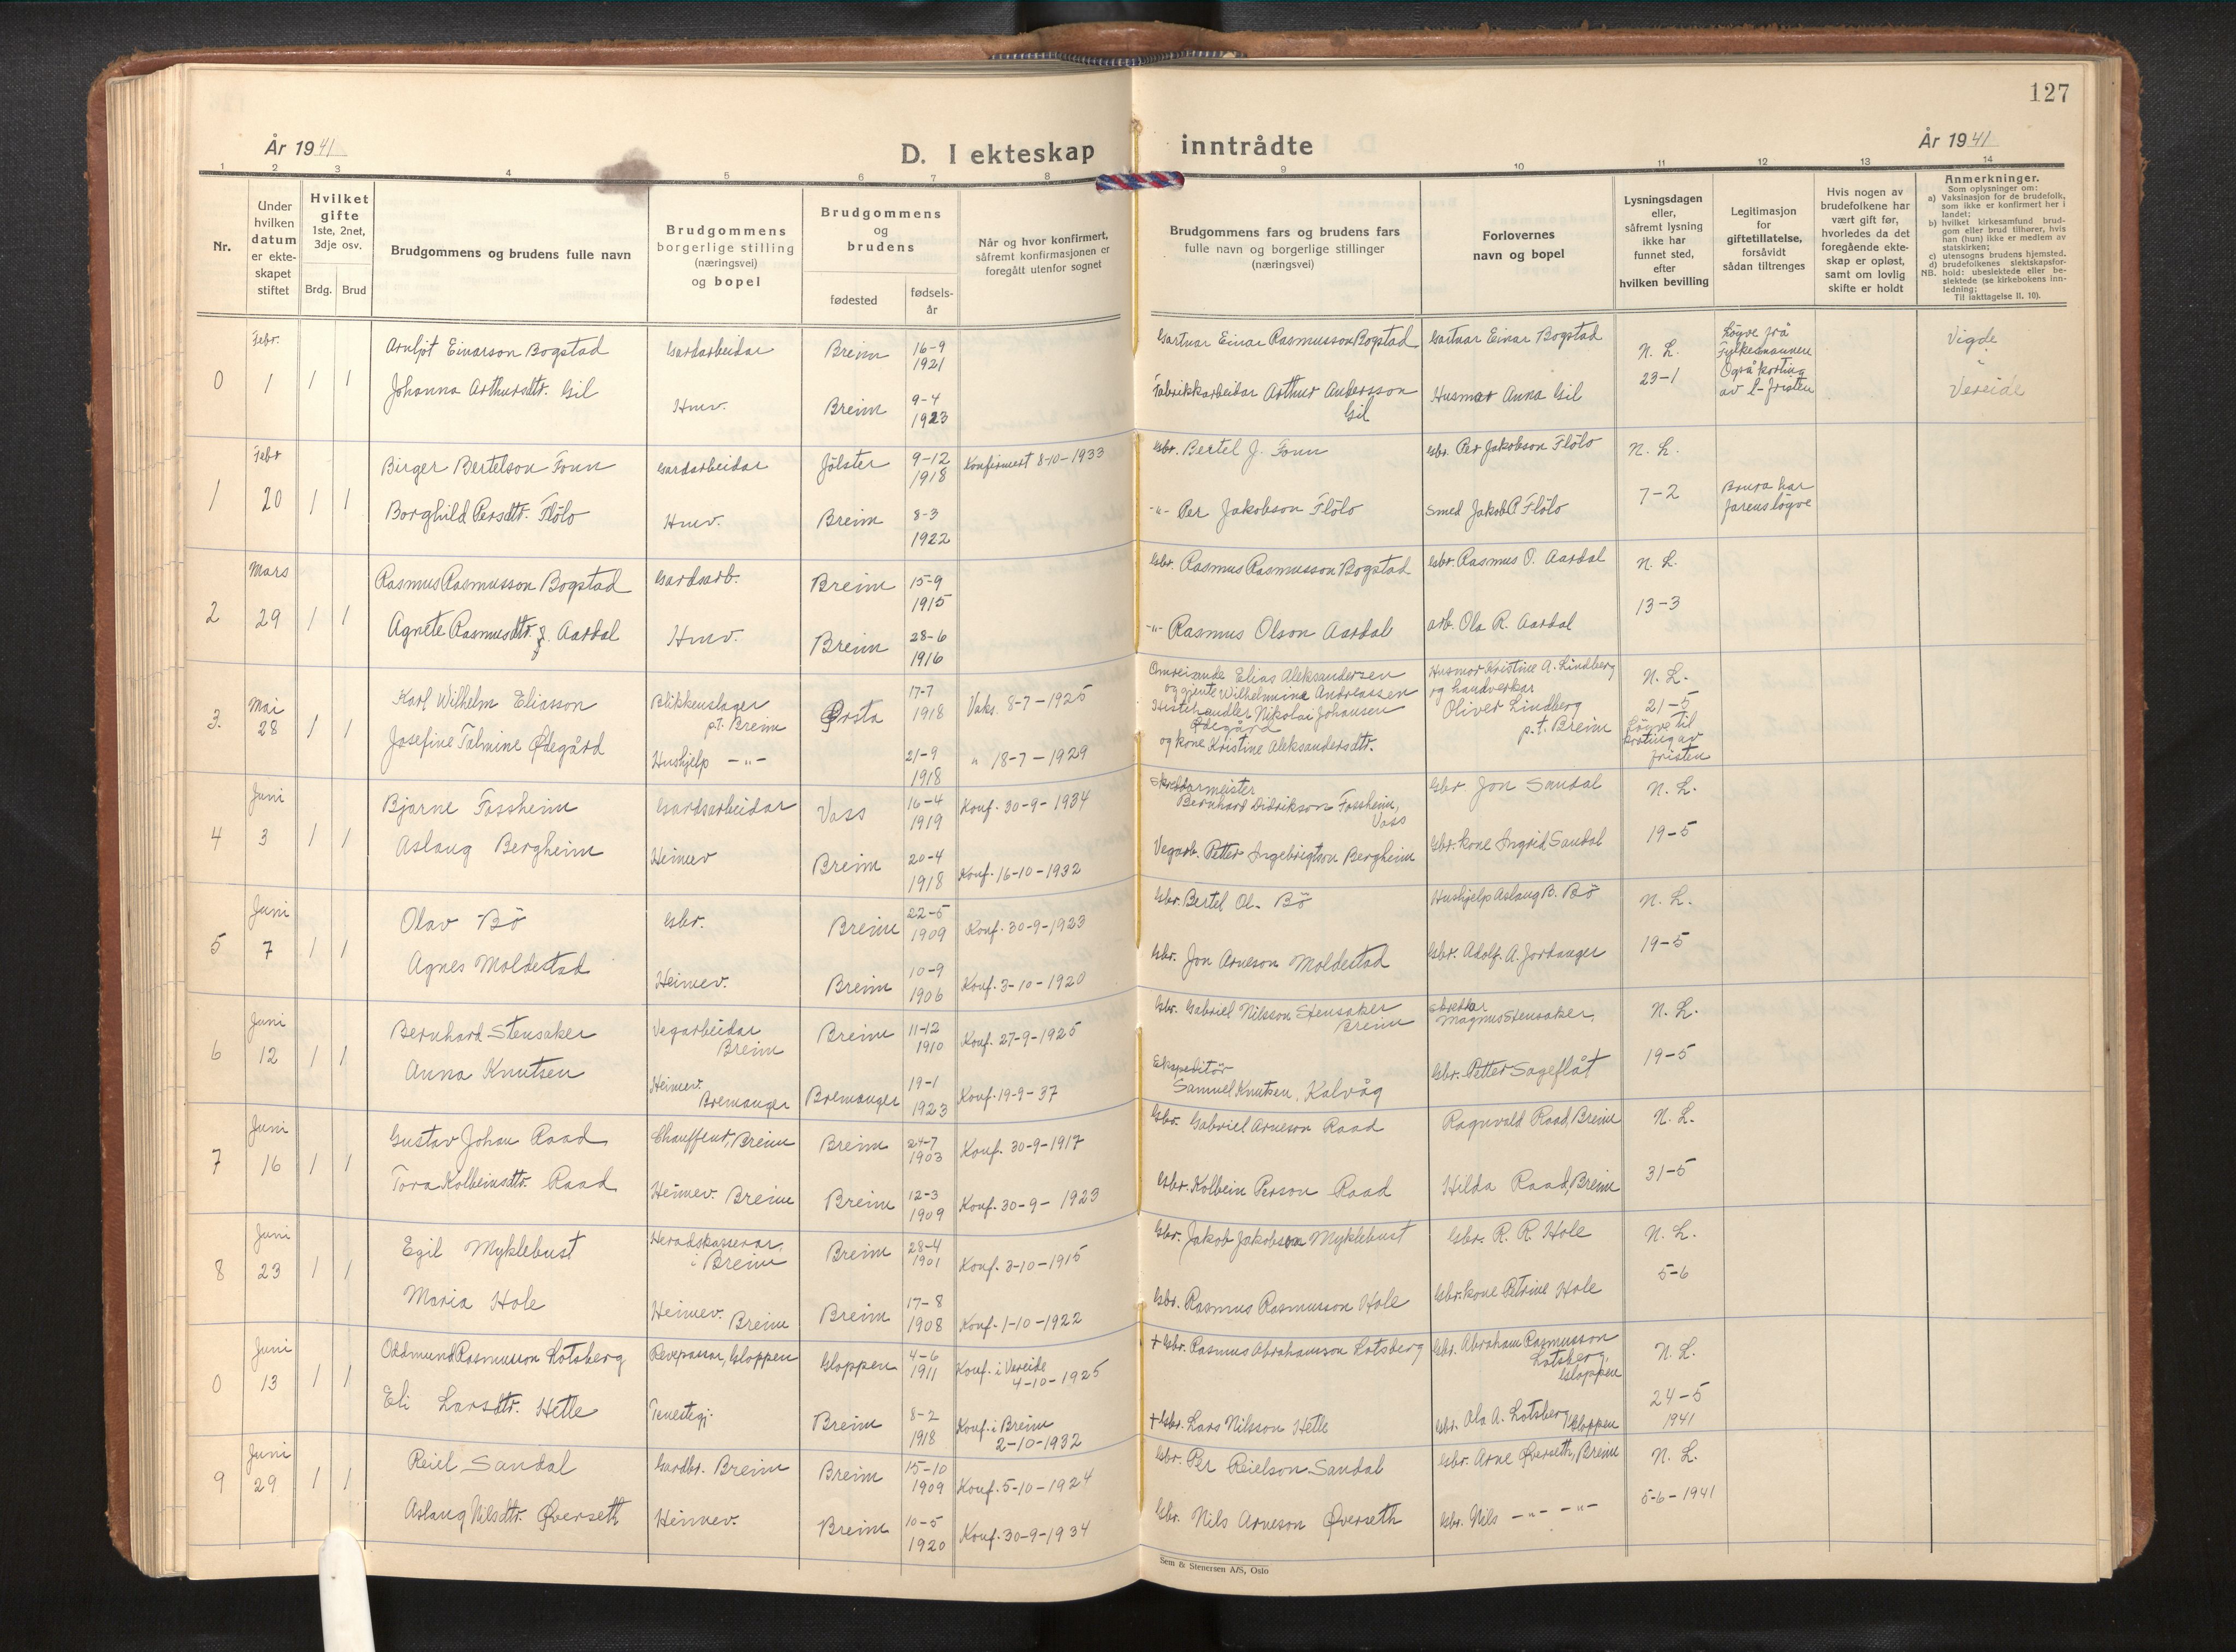 127
År 1941
D. I ekteskap inntrådte
År 1941
1 2 3 4 5 6 7 8 9 10 11 12 13 14
Nr.
Under hvilken datum er ekteskapet stiftet
Hvilket gifte 1ste, 2net, 3dje osv.
Brdg. Brud
Brudgommens og brudens fulle navn
Brudgommens borgerlige stilling (næringsvei) og bopel
Brudgommens og brudens
fødested
fødselsår
Når og hvor konfirmert, såfremt konfirmasjonen er foregått utenfor sognet
Brudgommens fars og brudens fars fulle navn og borgerlige stillinger (næringsvei)
Forlovernes navn og bopel
Lysningsdagen eller, såfremt lysning ikke har funnet sted, efter hvilken bevilling
Legitimasjon for giftetillatelse, forsåvidt sådan tiltrenges
Hvis nogen av brudefolkene har vært gift før, hvorledes da det foregående ekteskap er opløst, samt om lovlig skifte er holdt
Anmerkninger.
Som oplysninger om:
a) Vaksinasjon for de brudefolk, som ikke er konfirmert her i landet;
b) hvilket kirkesamfund brudgom eller brud tilhører, hvis han (hun) ikke er medlem av statskirken;
c) utensogns brudens hjemsted.
d) brudefolkenes slektskapsforhold: ubeslektede eller beslektede (se kirkebokens innledning;
NB. Til iakttagelse II. 10).
0 Febr. 1 1 1
Arnljot Einarson Bogstad Gardarbeidar Breim 16-9 1921 Gartnar Einar Rasmusson Bogstad Gartnar Einar Bogstad N. L. 23-1 Løyve frå Fylkesmannen Også korting av l-fristen Vigde i Vereide
Johanna Arthursdtr. Gil Huv. Breim 9-4 1923 Fabrikkarbeidar Arthur Andersson Gil Husmor Anna Gil
1 Febr 20 1 1
Birger Bertelson Fonn Gardarbeidar Jölster 9-12 1918 Konfirmert 8-10-1933 Gbr. Bertel J. Fonn Gbr. Per Jakobson Flölo N. L. 7-2
Borghild Persdtr. Flölo Huv. Breim 8-3 1922 -"- Per Jakobson Flölo Smed Jakob P. Flölo Brura har farens løyve
2 Mars 29 1 1
Rasmus Rasmusson Bogstad Gardsarb. Breim 15-9 1915 Gbr. Rasmus Rasmusson Bogstad Gbr. Rasmus O. Aardal N. L. 13-3
Agnete Rasmusdtr. f. Aardal Huv. Breim 28-6 1916 -"- Rasmus Olson Aardal arb. Ola R. Aardal
3. Mai 28 1 1
Karl Wilhelm Eliasson Blikkenslager p.t. Breim Ørsta 17-7 1918 Vaks. 8-7-1925 Omreisande Elias Aleksandersen og gjente Wilhelmine Andreassen Husmor Kristine A. Lindberg og handverkar Oliver Lindberg p.t. Breim N. L. 21-5 Løyve til korting av fristen
Josefine Talmine Ødegård Hushjelp -"- 21-9 1918 " 18-7-1929 Hestehandler Nikolai Johansen Ødegård og kone Kristine Aleksandersdtr.
4 Juni 3 1 1
Bjarne Fossheim Gardsarbeidar Voss 16-4 1919 Konf. 30-9-1934 Skreddarmeister Bernhard Didrikson Fossheim, Voss Gbr Jon Sandal N. L. 19-5
Aslaug Bergheim Heimev Breim 20-4 1918 Konf. 16-10-1932 Vegarb. Petter Ingebrigtson Bergheim Gbr. kone Ingrid Sandal
5 Juni 7 1 1
Olav Bö Gbr. Breim 22-5 1909 Konf. 30-9-1923 Gbr. Bertel Ol. Bö Hushjelp Aslaug B. Bö N. L. 19-5
Agnes Moldestad Heimev. Breim 10-9 1906 Konf. 3-10-1920 Gbr. Jon Arneson Moldestad Gbr. Adolf A. Jordanger
6 Juni 12 1 1
Bernhard Stensaker Vegarbeidar Breim Breim 11-12 1910 Konf. 27-9-1925 Gbr. Gabriel Nilsson Stensaker Breim Skreddar Magnus Stensaker. N. L. 19-5
Anna Knutsen Heimev. Bremanger Bremanger 19-1 1923 Konf. 19-9-37 Ekspeditör Samuel Knutsen, Kalvåg Gbr. Petter Sageflåt
7 Juni 16 1 1
Gustav Johan Raad Chauffeur, Breim Breim 24-7 1903 Konf. 30-9-1917 Gbr. Gabriel Arneson Raad Ragnvald Raad, Breim N. L. 31-5
Tora Kolbeinsdtr. Raad Heimev. Breim Breim 12-3 1909 Konf. 30-9-1923 Gbr. Kolbein Person Raad Hilda Raad, Breim
8 Juni 23 1 1
Egil Myklebust Heradskasserar, i Breim Breim 28-4 1901 Konf. 3-10-1915 Gbr. Jakob Jakobson Myklebust Gbr. R. R. Hole N. L. 5-6
Maria Hole Heimev. Breim Breim 17-8 1908 Konf. 1-10-1922 Gbr. Rasmus Rasmusson Hole Gbr. kone Petrine Hole
0 Juni 13 1 1
Oddmund Rasmusson Lotsberg Revepassar, Gloppen Gloppen 4-6 1911 Konf. i Vereide 4-10-1925 + Gbr. Rasmus Abrahamson Lotsberg Gbr. Abraham Rasmusson Lotsberg, Gloppen N. L. 24-5 1941
Eli Larsdtr. Hetle Tenestegj. Breim 8-2 1918 Konf. i Breim 2-10-1932 + Gbr. Lars Nilsson Hetle Gbr. Ola A. Lotsberg, Gloppen
9 Juni 29 1 1
Reiel Sandal Gardbr. Breim Breim 15-10 1909 Konf. 5-10-1924 Gbr. Per Reielson Sandal Gbr. Arne Øverseth, Breim N. L. 5-6-1941
Aslaug Nilsdtr. Øverseth Heimev. Breim 10-5 1920 Konf. 30-9-1934 Gbr. Nils Arneson Øverseth Gbr. Nils -"- -"-
Sem & Stenersen A/S, Oslo